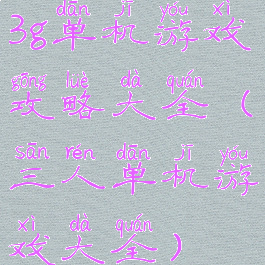 dān jī yóu xì
3g单机游戏
gōng lüè dà quán
攻略大全（
sān rén dān jī yóu
三人单机游
xì dà quán
戏大全）